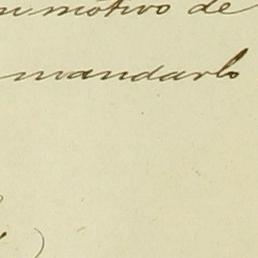 motivo de
mandarlo